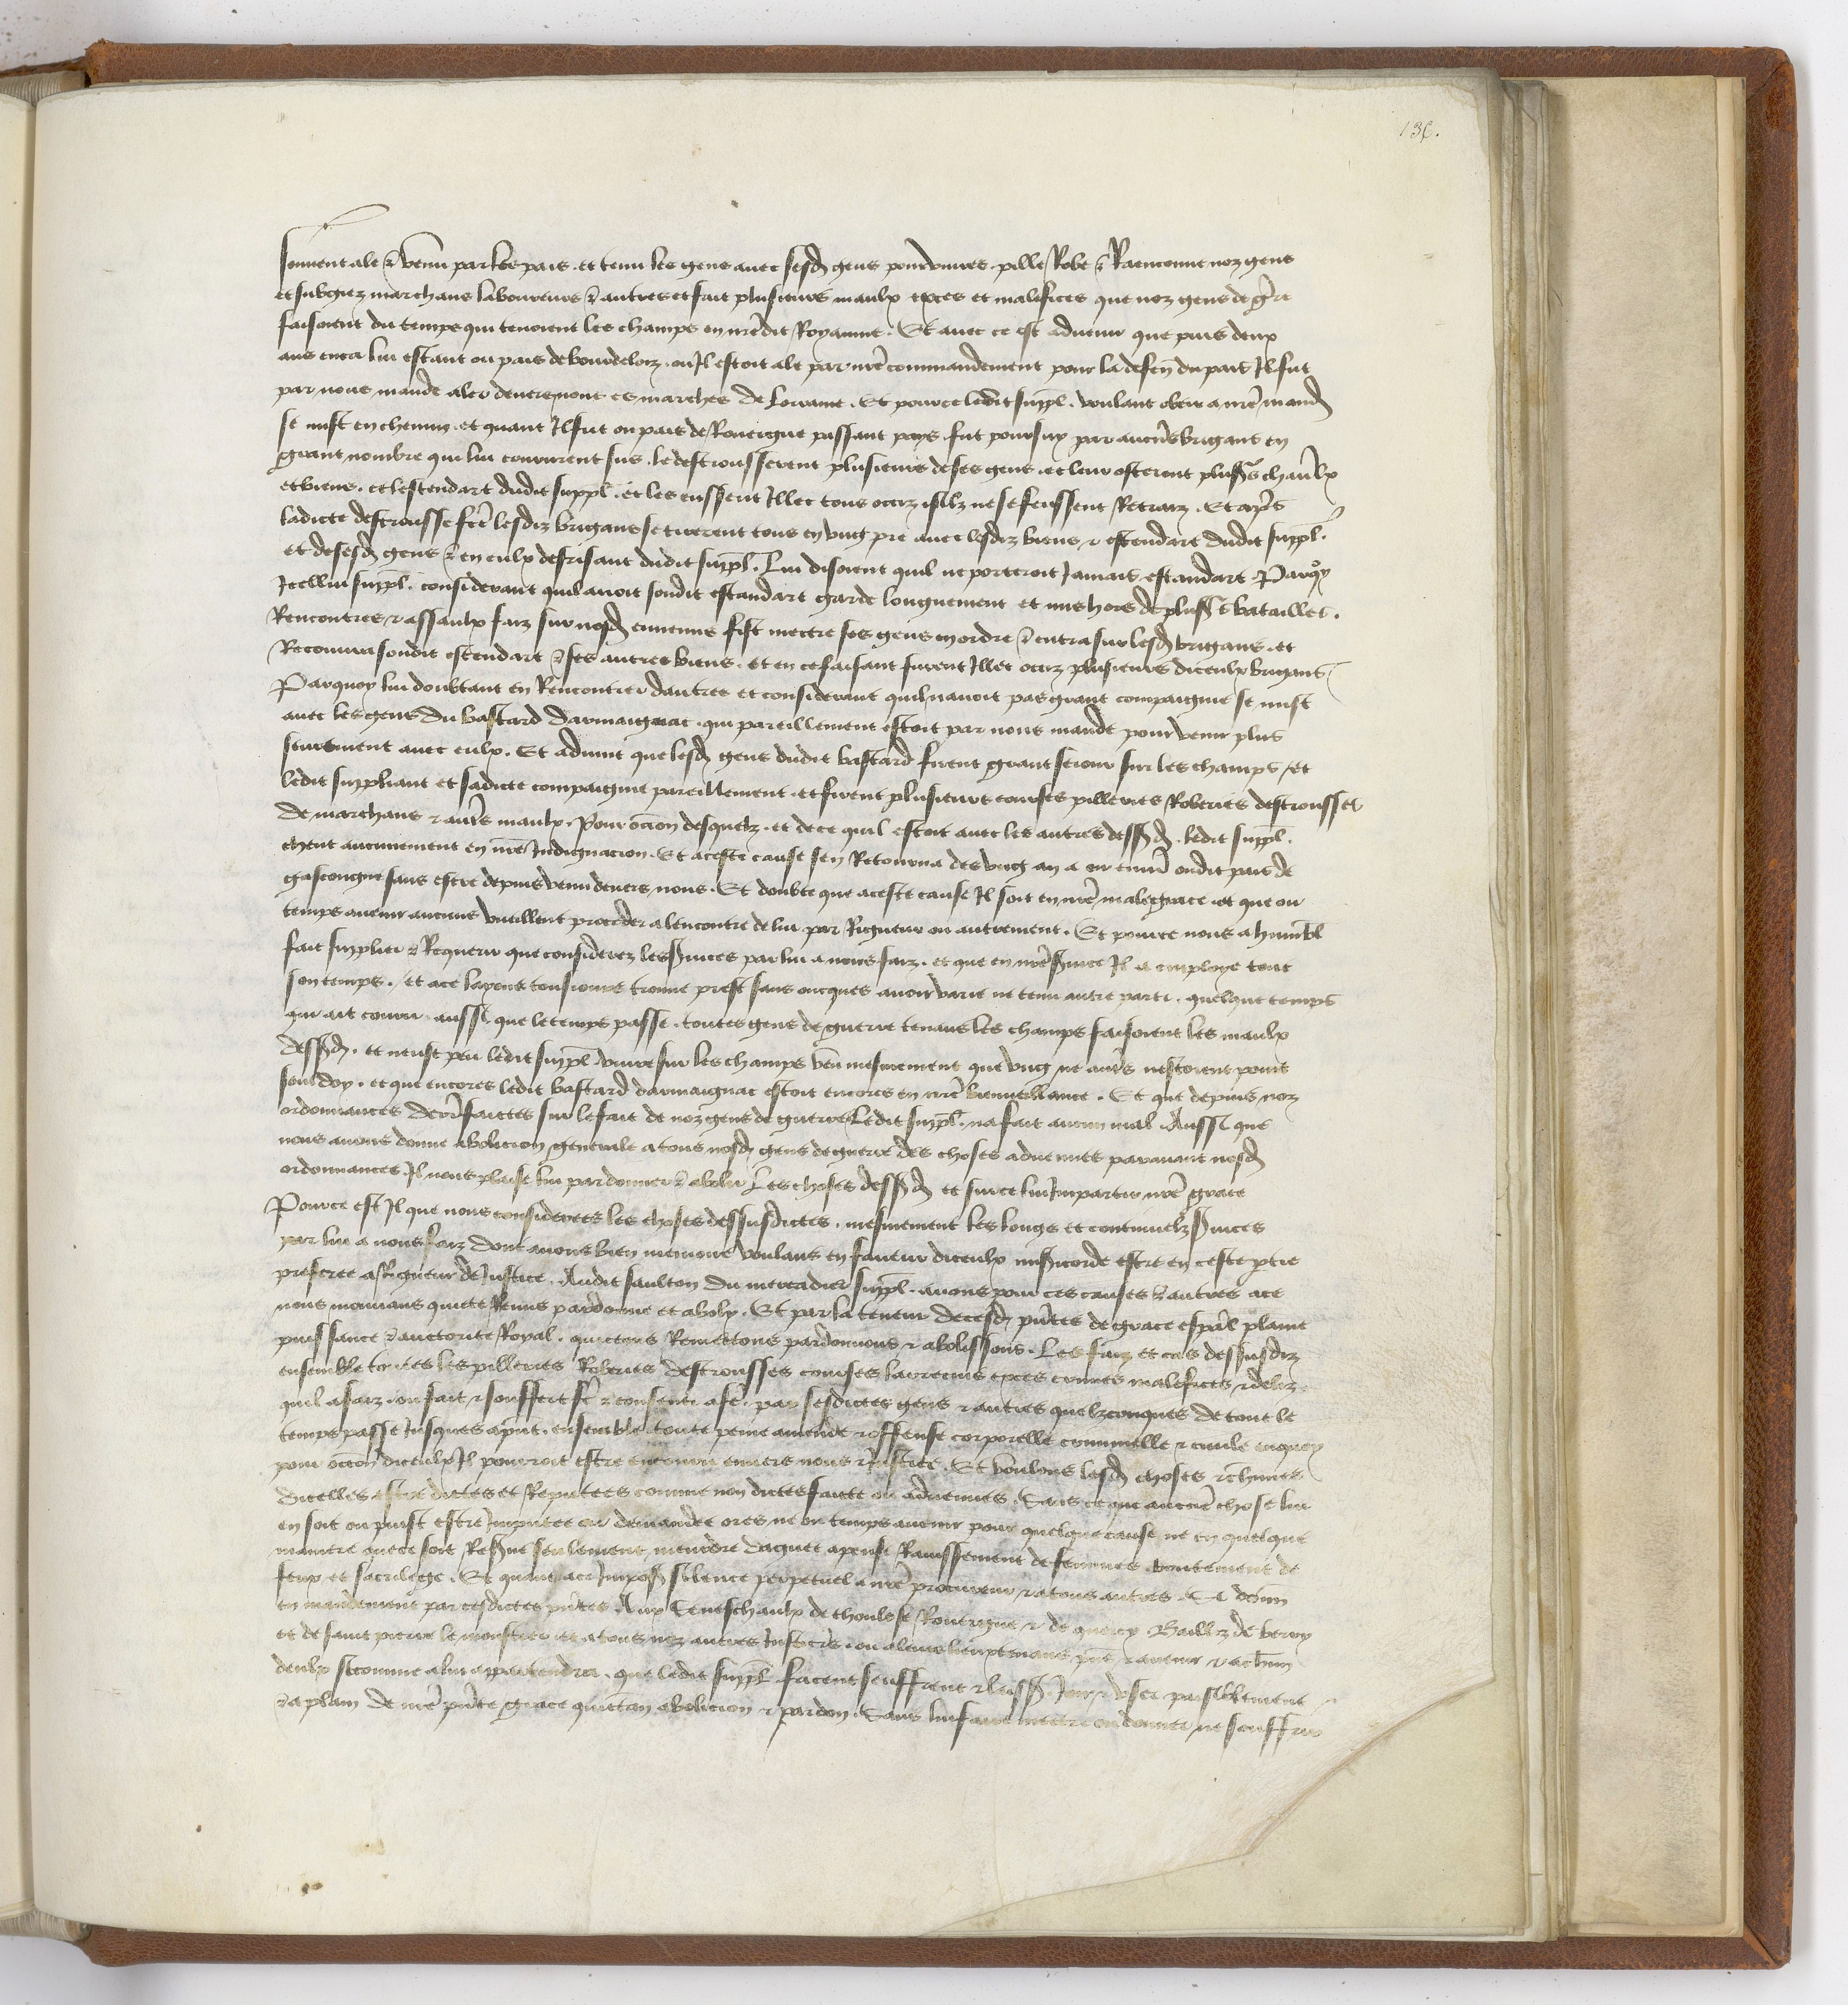 136.
souvent ale & venu par les pais. et tenu les gens avec sesd gens pour vivres pille Robe & Raenconne noz gens
et subgiez marchans laboureurs & autres et fait plusieurs maulx exces et malefices que noz gens de g̃re
faisoient du temps qui tenoient les champs en nr̃edit Royaume. Et avec ce est advenu que puis deux
ans enca lui estant ou pais de bourdeloiz. ou Il estoit ale par nr̃e commandement pour la defeñ du pais Il fut
par nous mande aler devers nous es marches de Lorraine. Et pource ledit suppl̃. voulant obeir a nr̃e mand
se mist en chemin. et quant Il fut ou pais de Rouergue passant pays fut poursuy par aucũs brigans en
grant nombre qui lui coururent sus. le destrousserent plusieurs de ses gens. et leur osterent plusrs̃ chaũlx
et biens. et lestendart dudit suppl̃. et les eussent Illec tous occiz silz ne se feussent Retraiz. Et ap̃s
ladicte destrousse fc̃e lesdiz brigans se tirerent tous en ung pre avec lesdiz biens & estendart dudit suppl̃.
et de sesd gens & en eulx desrisant dudit suppl̃. Lui disoient quil ne porteroit Jamais estandart. Parquoy
Icellui suppl̃. considerant quil avoit sondit estandart garde longuement et mis hors de plusrs̃ batailles.
Rencontres & assaulx faiz sur nosd ennemis fist mectre ses gens en ordre & entra sur lesd brigans. et
Recouvra sondit estendart & ses autres biens. et en ce faisant furent Illec occiz plusieurs diceulx brigans
Parquoy lui doubtant en Rencontrer dautres et considerant quil navoit pas grant compaignie se mist
avec les gens du bastard darmaignac. qui pareillement estoit par nous mande pour venir plus
seurement avec eulx. Et advint que lesd gens dudit bastard firent grant seiour sur les champs / et
ledit suppliant et sadicte compaignie pareillement. et firent plusieurs courses pilleries Roberies destrousses
de marchans & aut̃s maulx. Pour occõn desquelz. et de ce quil estoit avec les autres dessusd. ledit suppl̃.
cheut aucunement en nr̃e Indignacion. Et a ceste cause sen Retourna des ung an a ou envir̃ oudit pais de
gascongne sans estre depuis venu devers nous. Et doubte que a ceste cause Il soit en nr̃e malegrace. et que ou
temps avenir aucuns vueillent proceder alencontre de lui par Rigueur ou autrement. Et pource nous a humbl̃
fait supplier & Requerir que considerez les s̃vices par lui a nous faiz. et que en nr̃e s̃vice Il a employe tout
son temps. / et a ce la peus tousiours trouve prest sans oncques avoir varie ne tenu autre parti. quelque temps
qui ait couru. aussi que le temps passe. toutes gens de guerre tenans les champs faisoient les maulx
dessusd. et neust peu ledit suppl̃ vivre sur les champs veu mesmement que ung ne aut̃s nestoient point
souldoy. et que encores ledit bastard darmaignac estoit encores en nr̃e bienveillance. Et que depuis noz
ordonnances derr̃ faictes sur le fait de noz gens de guerre Ledit suppl̃. na fait aucun mal. Aussi que
nous avons donne abolicion generale a tous nosd gens de guerre des choses advenues paravant nosd
ordonnances. Il nous plaise lui pardonner & abolir Les choses dessusd et sur ce lui Impartir nr̃e grace
Pource est Il que nous considerees les choses dessusdictes. mesmement les longs et continuelz s̃vices
par lui a nous faiz dont avons bien memoire voulans en faveur diceulx mis̃icorde estre en ceste p̃tie
preferee a Rigueur de Justice. Audit saulton du mercadier suppl̃. avons pour ces causes & autres a ce
nous mouvans quicte Remis pardonne et aboly. Et par la teneur de cesd pñtes de grace esp̃al plaine
puissance & auctorite Royal. quictons Remectons pardonnons & abolissons. Les faiz et cas dessusdiz
ensemble toutes les pilleries Roberies destrousses courses larrecins exces crimes malefices & deliz
quil a faiz. ou fait & souffert fc̃e & consenti a fc̃e. par sesdictes gens & autres quelzconques de tout le
temps passe Jusques a pñt. ensemble toute peine amende & offense corporelle criminelle & civile en quoy
pour occõn diceulx Il pourroit estre encouru envers nous & Justice. Et voulons lesd choses & ch̃unes
dicelles estre dictes et Reputees comme non dictes faictes ou advenues. Sans ce que aucune chose lui
en soit ou puist estre Imputee ou demandee ores ne ou temps avenir pour quelque cause ne en quelque
maniere que ce soit Res̃ve seulement meurdre daguet apense Ravissement de femmes boutement de
feux et sacrilege. Et quant a ce Imposõs silence perpetuel a nr̃e procureur & a tous autres. Et donñ
en mandement par cesdictes pñtes Aux Seneschaulx de thoulose Rouergue & de quercy. Bailliz de berry
et de saint pierre le moustier et a tous noz autres Justiciers. ou a leurs lieuxtenans pñs & avenir & a ch̃un
deulx si comme a lui appartendra. que ledit suppl̃ facent seuffrent & laissẽt Joir & user paisiblement
& a plain de nr̃e pñte grace quictan abolicion & pardon. Sans lui faire mectre ou donner ne souffrir